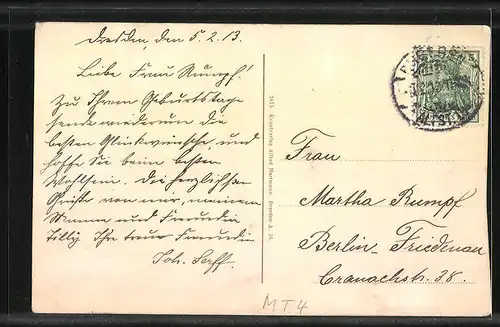 Dresden, den 5. 2. 13.
Liebe Frau Rumpf!
Zu Ihrem Geburtstage
sende wiederum die
besten Glückwünsche, und
hoffe Sie beim besten
Wohlsein. Die herzlichsten
Grüße von mir, meinem
Mann und Freundin
Tilly Ihre treue Freundin
Joh.
3415 Kunstverlag Alfred Hartmann, Dresden-A. 16.
Frau
Martha Rumpf
Berlin-Friedenau
Cranachstr. 38.
MT4